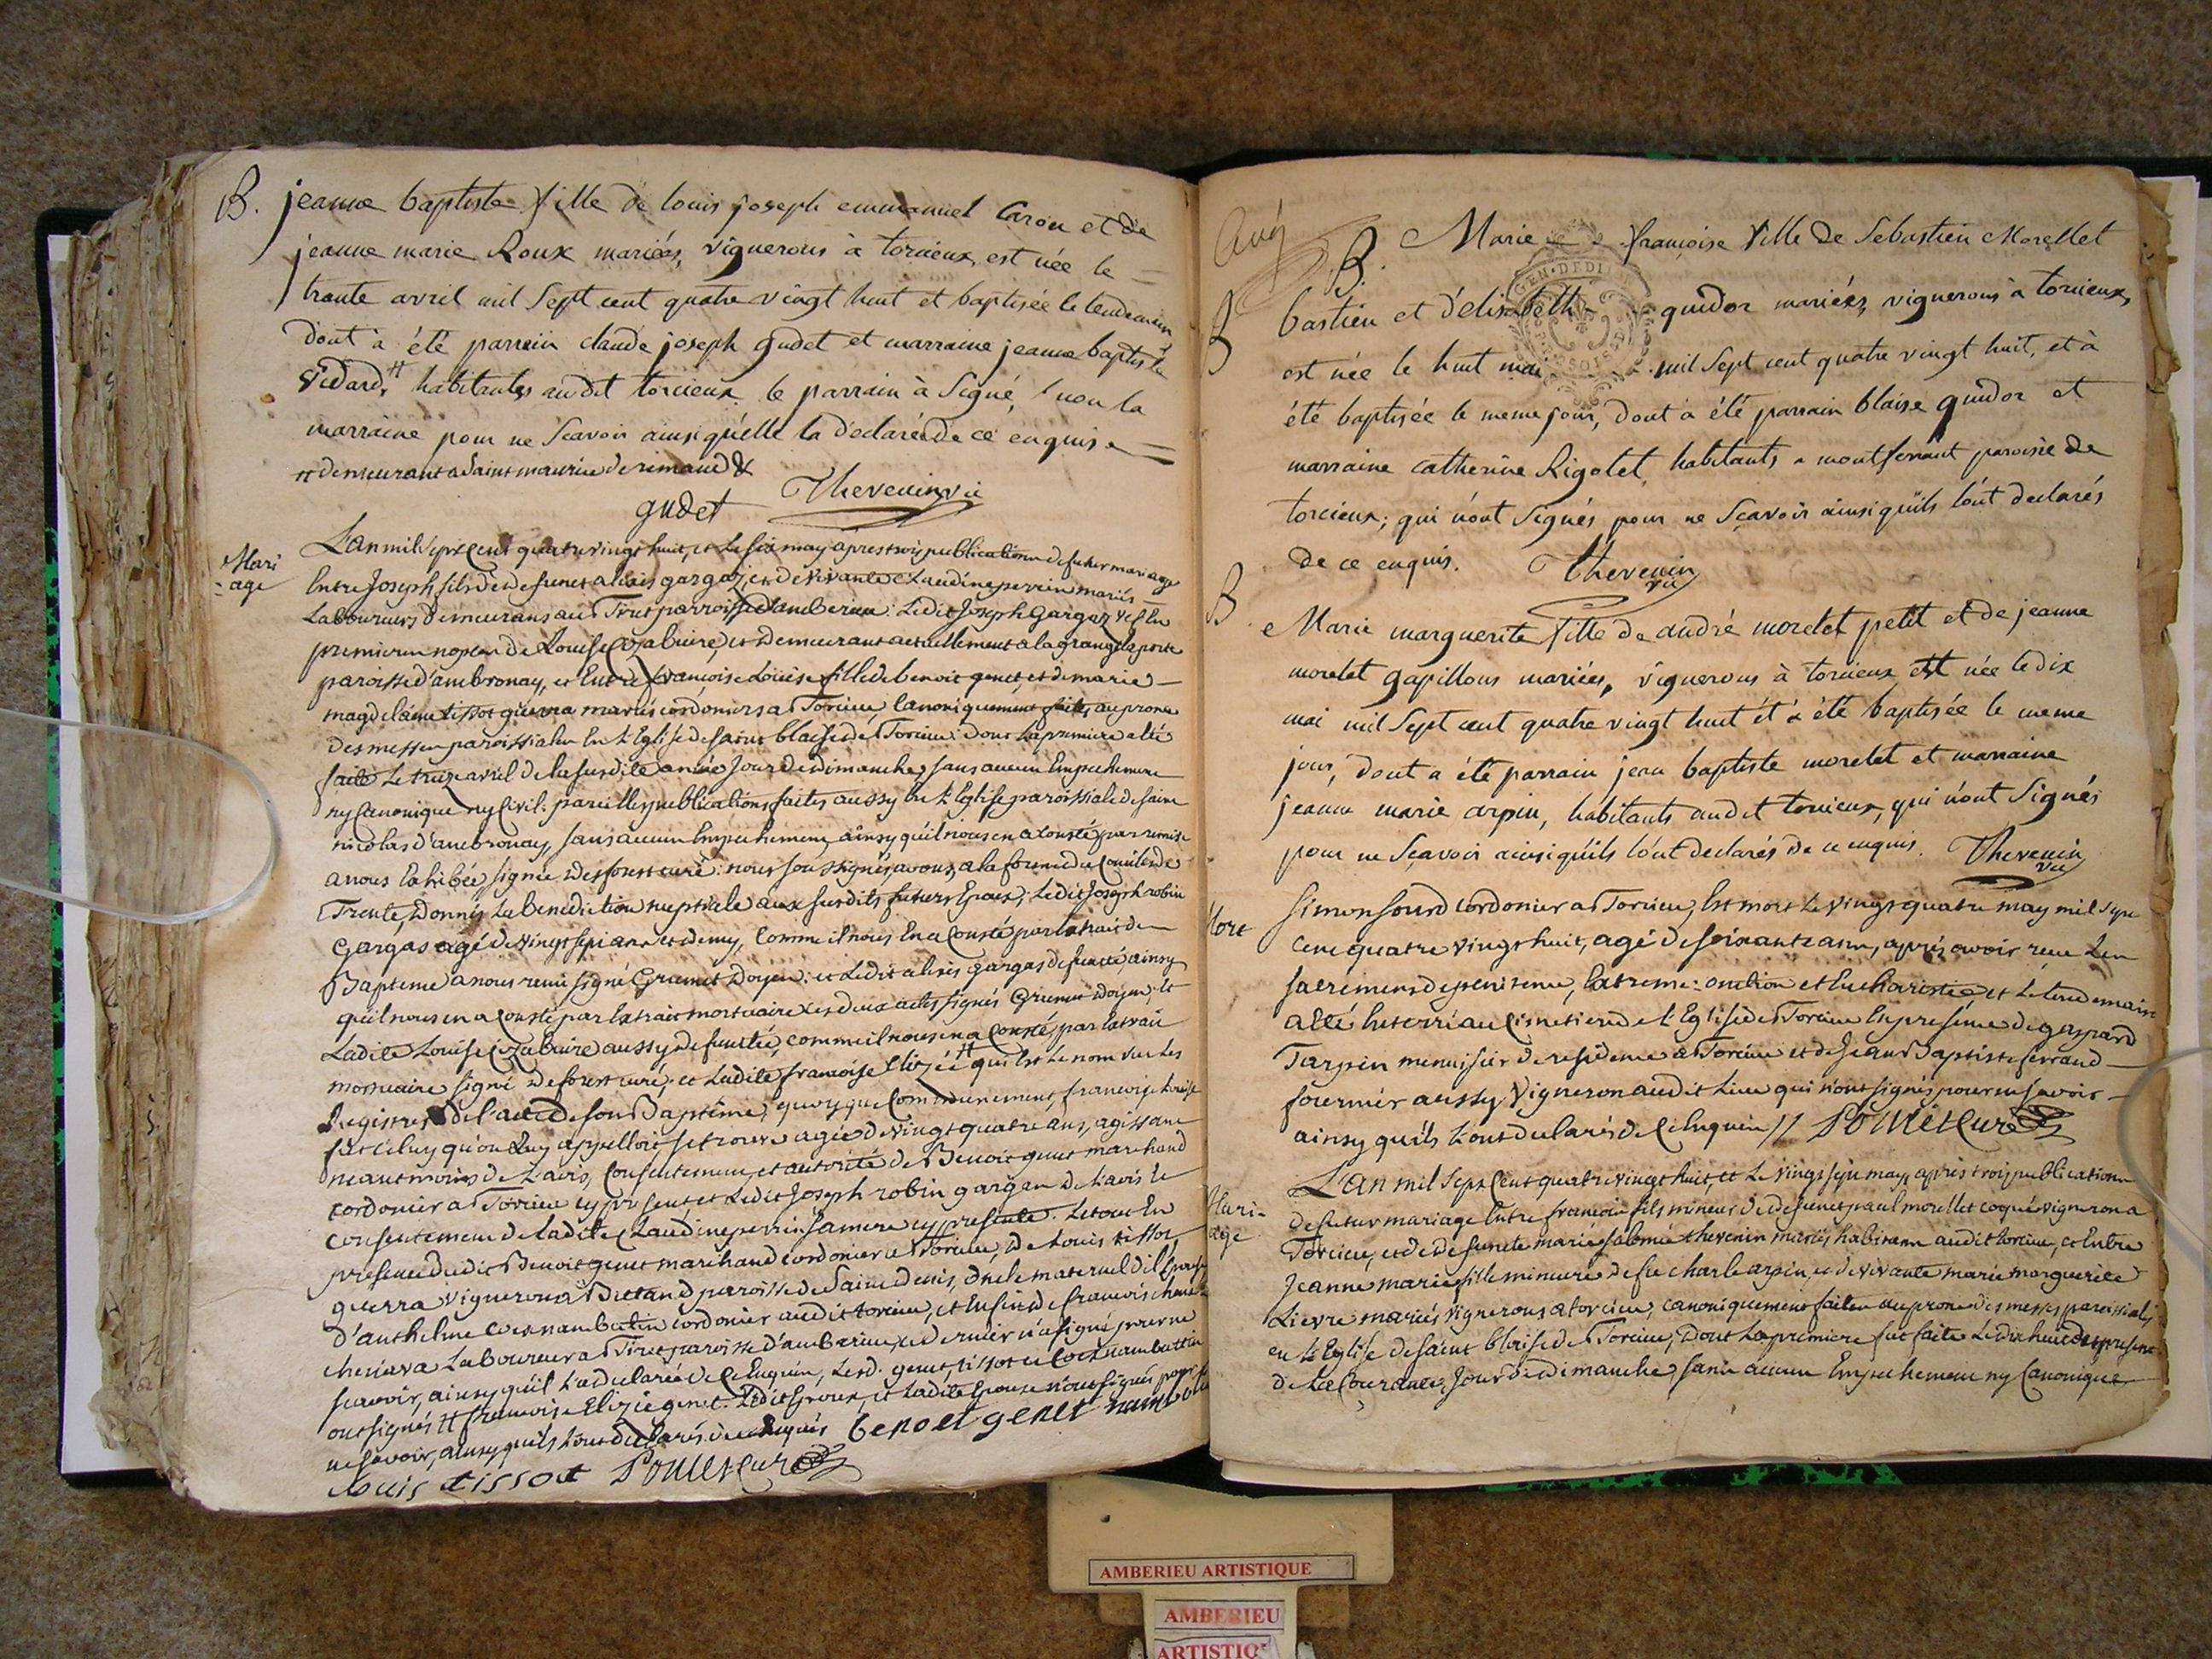 B. jeanne baptiste fille de louis joseph emmanuel Caron et de
jeanne marie Roux mariés, vignerons à torcieux, est née le
trante avril mil Sept cent quatre vingt huit et baptisée le lendemain
dont à été parrein claude joseph gudet et marraine jeanne baptiste
Vidard, # habitants audit torcieux le parrain à Signé, non la
marraine pour ne Scavoir ainsi qu'elle la declaré de ce enquise
# demeurant a Saint maurice de rimand &
gudet Thevenin vic
Mari
-age
L'an mil sept Cent quatre vingt huit, et Le six may apres trois publications de futur mariage
Entre Joseph fils de defunct alexis gargaz, et de vivante Claudine perrin mariés
Laboureurs demeurans au Tiret parroisse d'amberieu: Ledit Joseph Gargaz vef En
premieres nopces de Louise Cozabuire, et demeurant actuellement a la grange la porte
paroisse d'ambronay, et Entre françoise Louise fille de benoit genet, et de marie
magdelaine tissot guerra mariés cordoniers a Torcieu, Canoniquement faites au prone
des messes paroissiales En L'Eglise de saint blaise de Torcieu: dont La premiere a été
faite Le treize avril de la susdite année Jour de dimanche, sans aucun Empechement
ny Canonique ny Civil. pareilles publications faites aussy En L'Eglise paroissiale de saint
nicolas d'ambronay, sans aucun Empechement, ainsy qu'il nous en a Consté par remise
a nous Exhibée, signée deforest curé: nous soussignés avons, a la forme du Concile de
Trente, donnés La benediction nuptiale aux susdits futurs Epoux; Ledit Joseph robin
Gargas agé de vingt sept ans et demy, Comme il nous En a Consté par Extrait de
Bapteme a nous remis signé Grumet doyen: et Ledit alexis gargas defunct, ainsy
qu'il nous en a Consté par Extrait mortuaire des deux actes signés Grumet doyen, et
Ladite Louise Cozabuire aussy defunctée, comme il nous en a Consté par Extrait
mortuaire signé deforest curé; et Ladite françoise Elizée # qui Est Le nom sur Les
Registres de l'acte de son Baptême, quoyque Communement, francoise Louise
fut Celuy qu'on Luy appelloit se trouve agée de vingt quatre ans, agissant
neantmoins de L'avis, Consentement, et autorité de Benoit genet marchand
cordonier a Torcieu cy present, et Ledit Joseph robin gargas de L'avis le
consentement de Ladite Claudine perrin sa mere cy presente. Le tout En
presence dudit Benoit genet marchand cordonier a Torcieu, de Louis tissot
guerra vigneron a Bettand paroisse de Saint denis, oncle maternel de l'Epouse
d'anthelme Coex nambottin cordonier audit torcieu, et Enfin de francois
cheneva Laboureur a Tiret paroisse d'amberieu, ce dernier n'a signé pour ne
scavoir, ainsy qu'il L'a declaré de Ce Enquis, Lesd. genet, tissot et Coex nambottin
ont signés # francoise Elizée genet. Ledit Epoux, et Ladite Epouse n'ont signés pour
ne scavoir, ainsy qu'ils L'ont declarés de ce Enquis benoit genet
Louis tissot Pomet Curé
Aug
B. Marie françoise fille de Sebastien Morellet
B bastien et d'elisabeth guidor mariées, vignerons à torcieux,
est née le huit mai mil Sept cent quatre vingt huit, et à
été baptisée le meme jour, dont à été parrain blaise guidor et
marraine catherine Rigolet, habitants a montferrant paroisse de
torcieux; qui n'ont Signés pour ne Sçavoir ainsi qu'ils l'ont declarés
de ce enquis. Thevenin
vic
GEN. DE DI
B. Marie marguerite fille de andré morelet petit et de jeanne
morelet gapillons mariées, vignerons à torcieux, est née le dix
mai mil Sept cent quatre vingt huit et à été baptisée le meme
jour, dont a été parrain jean baptiste morelet et marraine
jeanne marie arpin, habitants audit torcieux, qui n'ont Signés
pour ne Sçavoir ainsi qu'ils l'ont declarés de ce enquis. Thevenin
vic
Mort
simon sourd cordonier a Torcieu, Est mort Le vingt quatre may mil sept
cent quatre vingt huit, agé de soixante ans, après avoir recu Les
sacremens de penitence, Extreme-onction et Eucharistie, et Le lendemain
a été Enterré au Cimetiere de L'Eglise de Torcieu En presence de gaspard
Tarpin menuisier de residence a Torcieu et de Jean Baptiste ferrand
fournier aussy vigneron audit Lieu qui n'ont signés pour ne scavoir
ainsy qu'ils L'ont declarés de Ce Enquis // Pomet Curé
Mari-
age
L'an mil sept Cent quatre vingt huit, et Le vingt sept may, après trois publications
de futur mariage Entre francois fils mineur de defunct paul morellet coqué vigneron a
Torcieu, et de defuncte marie salomé thevenin mariés habitans audit torcieu, et Entre
Jeanne marie fille mineure de feu charle arpin, et de vivante marie marguerite
Lievre mariés vignerons a torcieu, canoniquement faites au prone des messes paroissiales
en L'Eglise de saint blaise de Torcieu, dont La premiere fut faite Le dix huit du present
de La Courante, Jour de dimanche, sans aucun Empechement ny Canonique
AMBERIEU ARTISTIQUE
AMBERIEU
ARTISTIQ